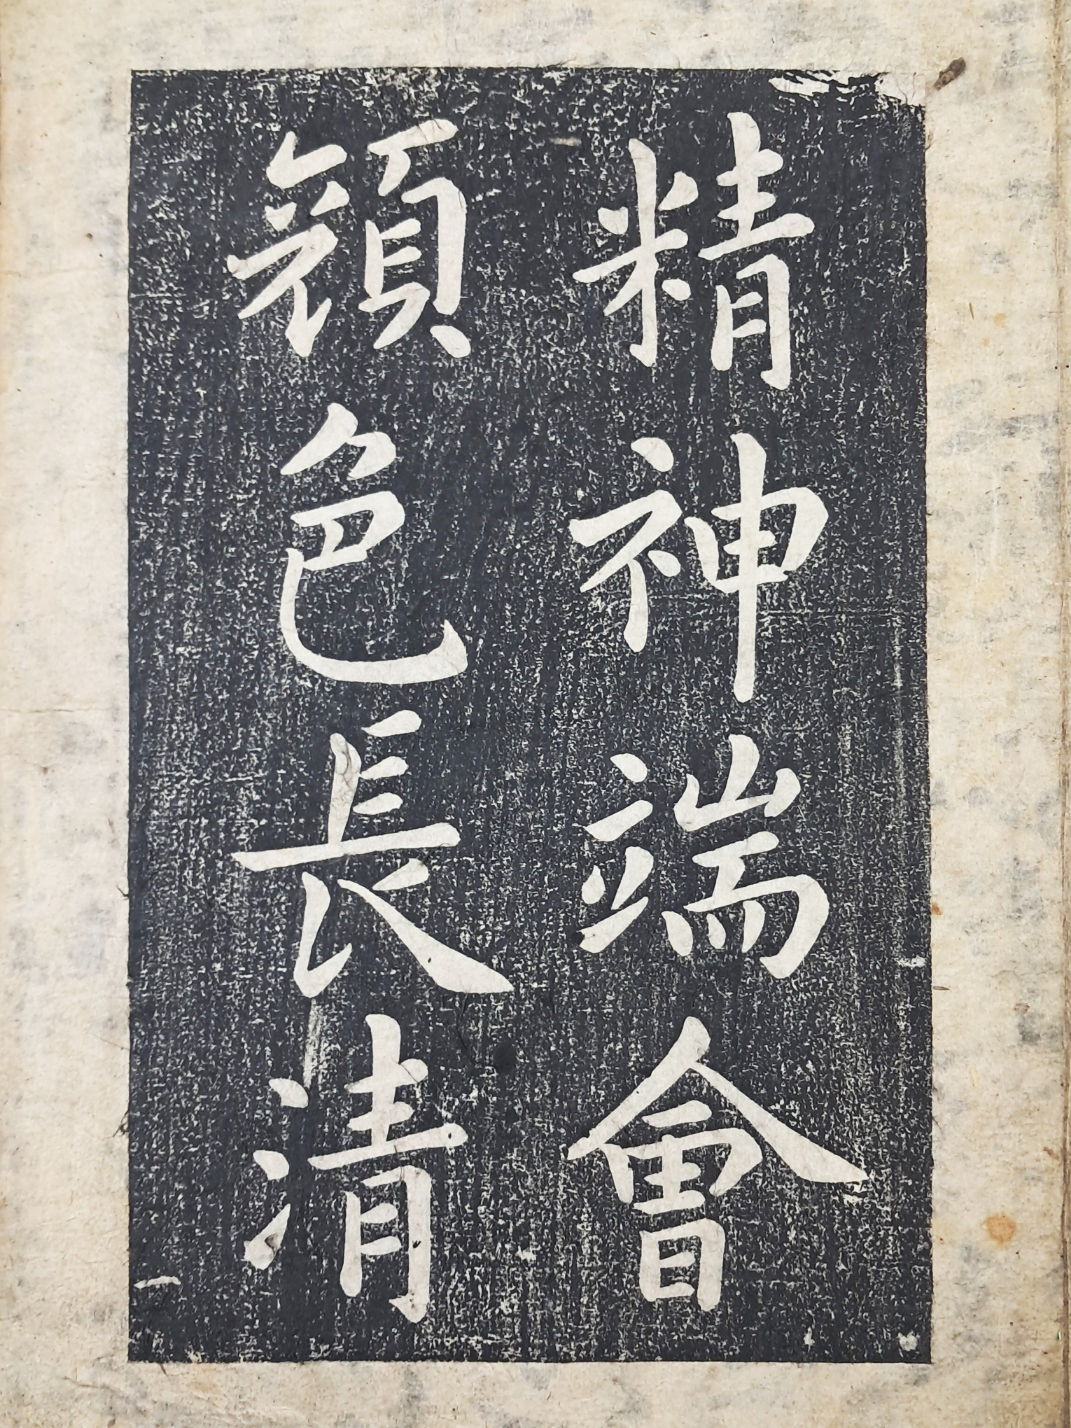 精神端會
顔色長清